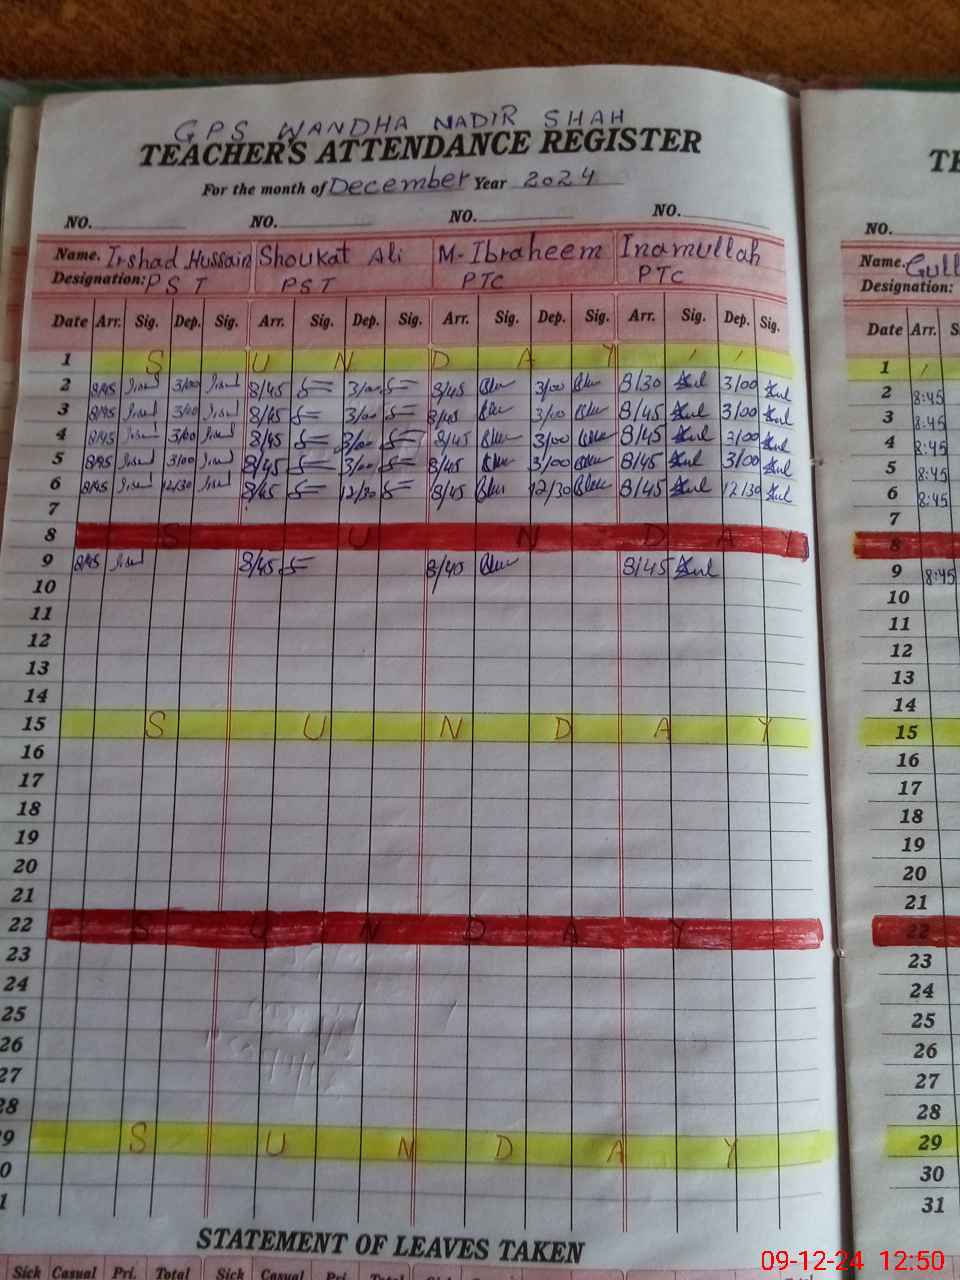 GPS WANDHA NADIR SHAH
TEACHER'S ATTENDANCE REGISTER
For the month of December Year 2024
NO. NO. NO. NO.
Name. Irshad Hussain Shoukat Ali M-Ibraheem Inamullah
Designation: PST PST PTC PTC
Date Arr. Sig. Dep. Sig. Arr. Sig. Dep. Sig. Arr. Sig. Dep. Sig. Arr. Sig. Dep. Sig.
1 S U N D A Y
2 8/45 3/00 8/45 3/00 8/45 3/00 8/30 3/00
3 8/45 3/00 8/45 3/00 8/45 3/00 8/45 3/00
4 8/45 3/00 8/45 3/00 8/45 3/00 8/45 3/00
5 8/45 3/00 8/45 3/00 8/45 3/00 8/45 3/00
6 8/45 12/30 8/45 12/30 8/45 12/30 8/45 12/30
7
8 S U N D A Y
9 8/45 8/45 8/40 8/45
10
11
12
13
14
15 S U N D A Y
16
17
18
19
20
21
22 S U N D A Y
23
24
25
26
27
28
9 S U N D A Y
0
1
STATEMENT OF LEAVES TAKEN
Sick Casual Pri. Total Sick Casual Pri. Total
TE
NO.
Name. Gull
Designation:
Date Arr. S
1
2 8:45
3 8:45
4 8:45
5 8:45
6 8:45
7
8
9 8:45
10
11
12
13
14
15
16
17
18
19
20
21
22
23
24
25
26
27
28
29
30
31
09-12-24 12:50